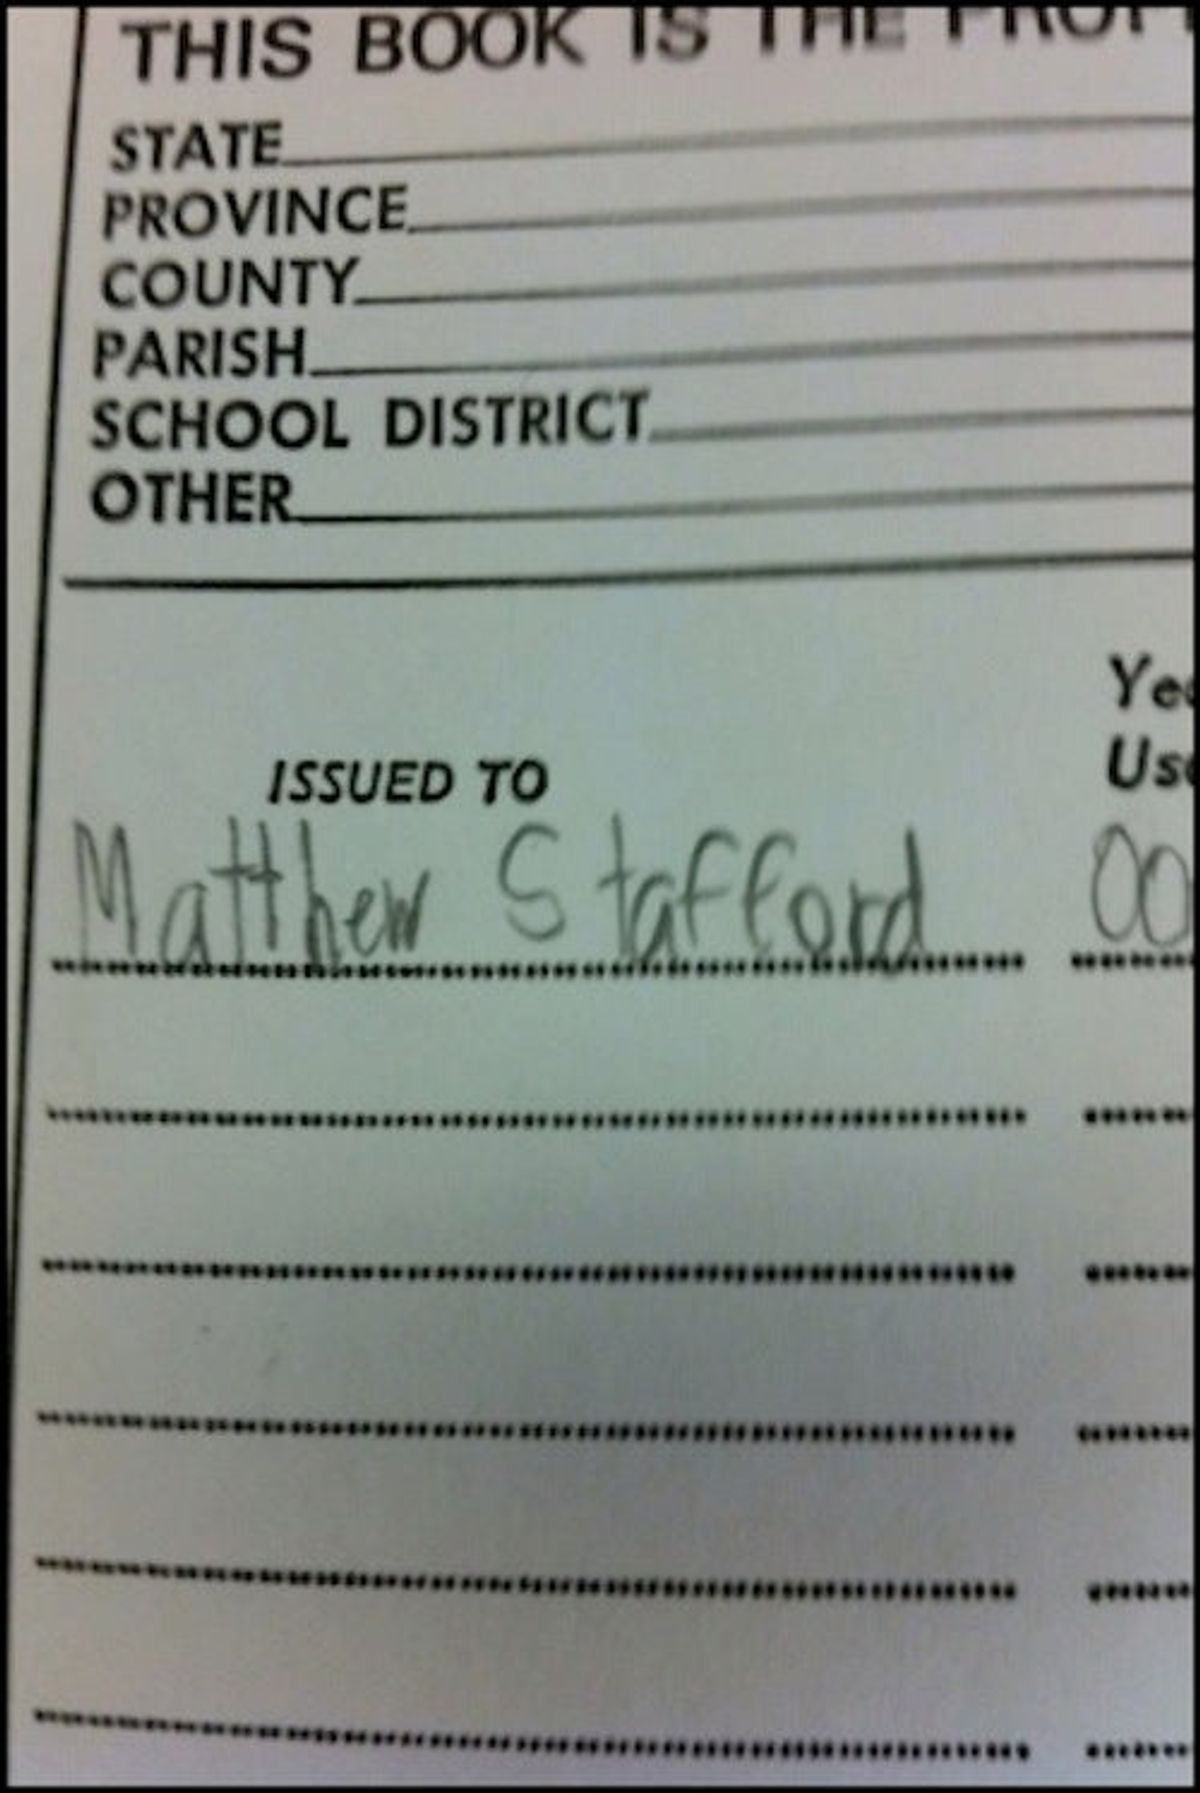 THIS BOOK IS THE
STATE
PROVINCE
COUNTY
PARISH
SCHOOL DISTRICT
OTHER
ISSUED TO
Matthew Stafford 00